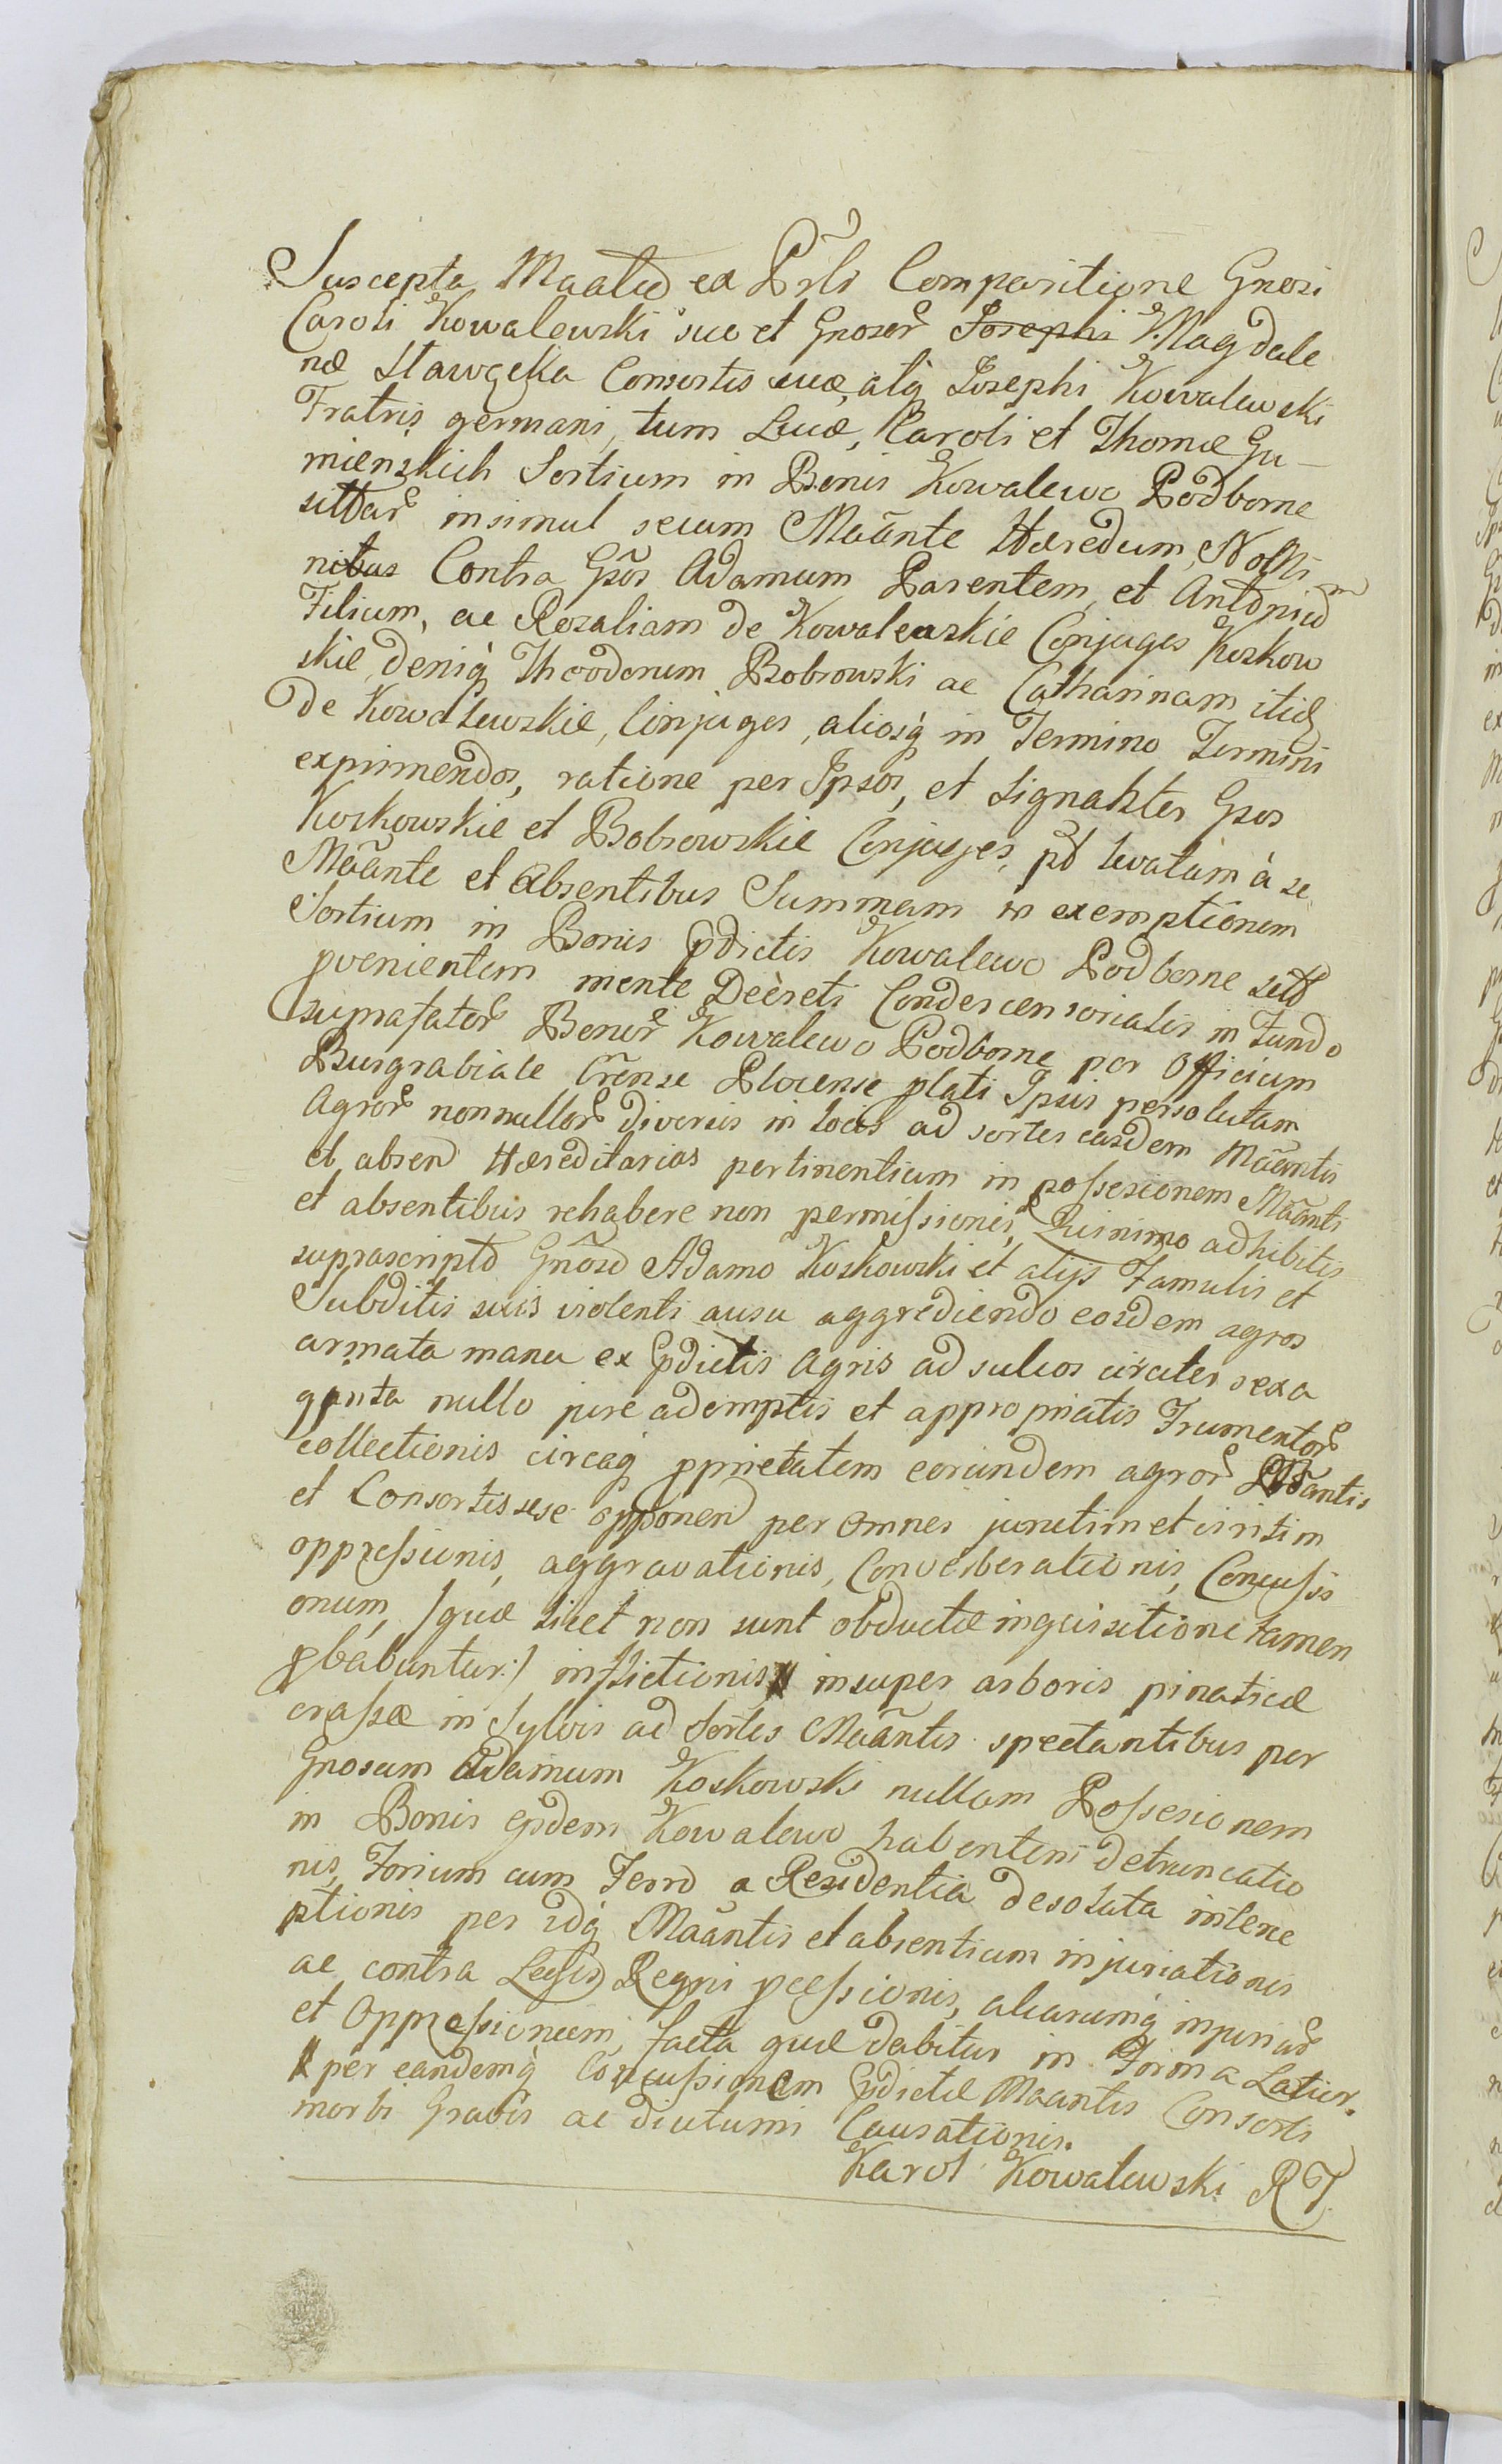 Suscepta Maatio ex Prli Comparitione Gnosi
Caroli Kowalewski suo et Gnosor Josephi Magdale
næ Stawęcka Consortis suæ, atq Josephi Kowalewski
Fratris germani, tum Lucæ, Caroli et Thomæ Gu-
mienskich Sortium in Bonis Kowalewo Podborne
sittar insimul secum Maānte Hæredum, Noīī
nibus Contra Gsos Adamum Parentem, et Antoniū
Filium, ac Rozaliam de Kowalewskie Conjuges Koskow
skie, deniq Theodorum Bobrowski ac Catharinam itid
de Kowalewskie, Conjuges, aliosq in Termino Termini
exprimendos, ratione per Ipsos, et signahter Gsos
Koskowskie et Bobrowskie Conjuges, pt levatam à se
Maānte et Absentibus Summam in exemptionem
Sortium in Bonis pdictis Kowalewo Podborne sitt
pvenientem mente Decreti Condescensorialis in Fundo
suprafator Bonor Kowalewo Podborne per Officium
Burgrabiale Crense Plocense plati Ipsis persolutam
Agror nonnullor diversis in locis ad sortes easdem Maāntis
et absen Hæreditarias pertinentium in possesionem Maānti
et absentibus rehabere non permissionis, Quinimo adhibitis
suprascripto Gnoso Adamo Koskowski et alijs Famulis et
Subditis suis violenti ausu aggrediendo eosdem agros
armata manu ex pdictis Agris ad sulcos circiter sexa
ginta nullo jure ademptis et appropriatis Frumentor
collectionis circaq pprietatem eorundem agror Maāntis
et Consortis sese opponen per omnes junctim et viritim
oppressionis, aggravationis, Conversberationis, Concussi
onum, /quæ licet non sunt obductæ inquisitione tamen
pbabuntur:/ inflictionis insuper arboris pinaticæ
crassæ in Sylvis ad Sortes Maāntis spectantibus per
Gnosum Adamum Koskowski nullam Possesionem
in Bonis ejsdem Kowalewo habentem detruncatio
nis, Forium cum Ferro a Residentia desolata interce
ptionis per idq Maāntis et absentium injuriationis
ac contra Leges Regni pcessionis, aliarumq injuriar
et Oppressionum, facta quæ dabitur in Forma Latior.
per eandemq Concussionem pdictæ Maantis Consorti
morbi Gravis ac diuturni Causationis.
Karol Kowalewski RT.